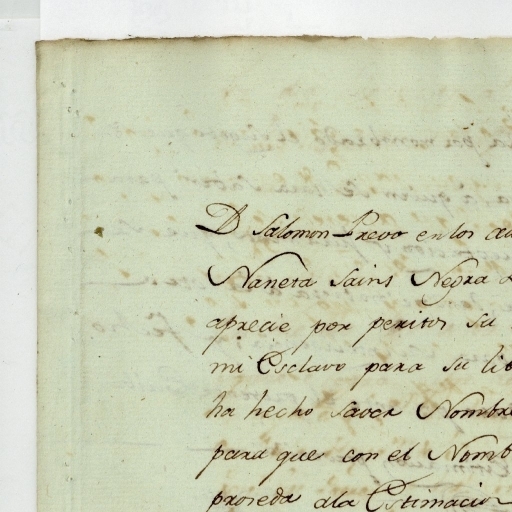 Dn Salomon Prevo en los au
Naneta Sains Negra
aprecie por peritos su
mi Esclavo para su lib
ha hecho saver Nombre
para que con el Nomb
proseda ala Estimacion